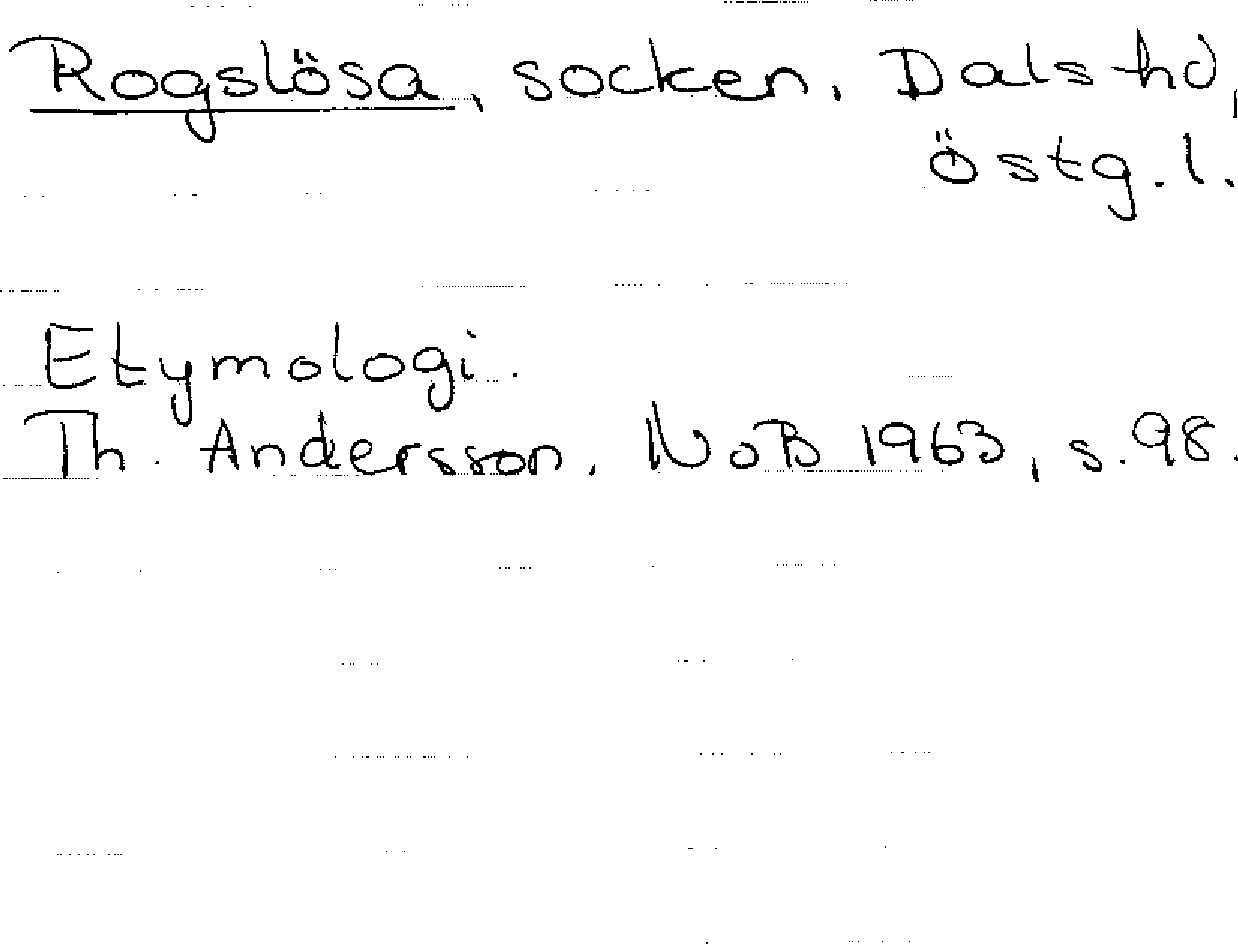 Rogslösa, socken, Dals hd,
Östg.l.
Etymologi.
Th. Andersson, NoB 1963, s. 98.